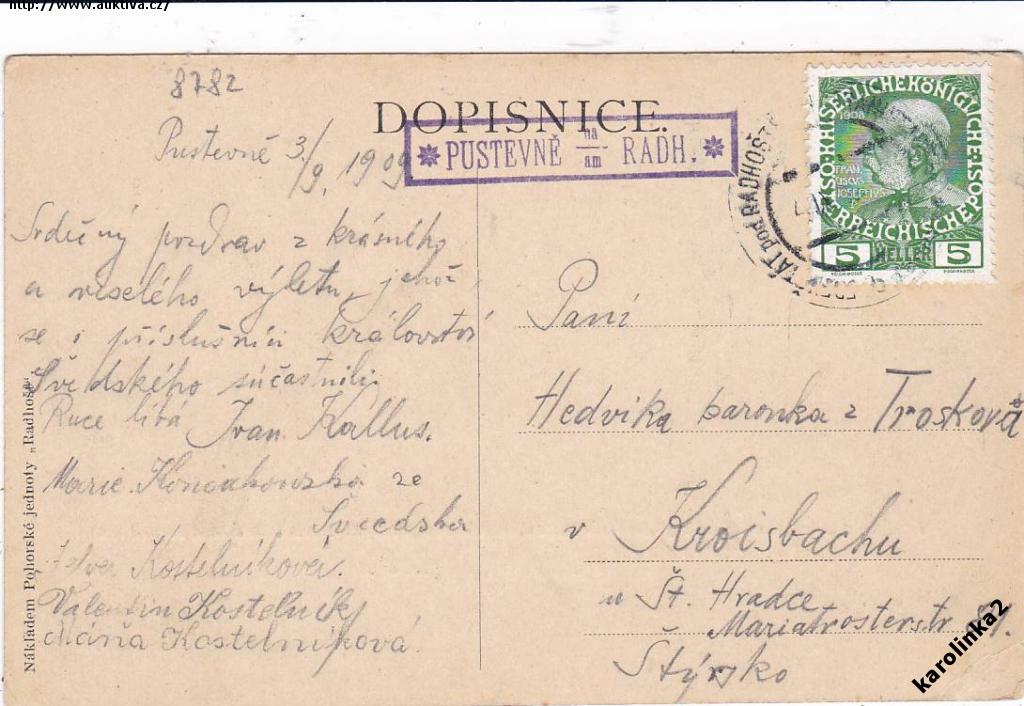 http://www.auktiva.cz/
8782
DOPISNICE.
PUSTEVNĚ na/am RADH.
Pustevně 3/9. 1909
Srdečný pozdrav z krásného
a veselého výletu, jehož
se i příslušníci království
Švédského súčastnili.
Ruce líbá Ivan Kallus.
Marie ze
Kostelníková.
Valentin Kostelník
Máňa Kostelníková.
Nákladem Pohorské jednoty „Radhošť“.
KAISERLICHE KÖNIGLICHE
ÖSTERREICHISCHE POST
1908
FRAN
CISCVS
IOSEFIVS
5 HELLER 5
pod RADHOŠTĚM
Paní
Hedvika baronka z Trosková
v Kroisbachu
u Št. Hradce
Mariatrosterstr
Štýrsko
karolinka2